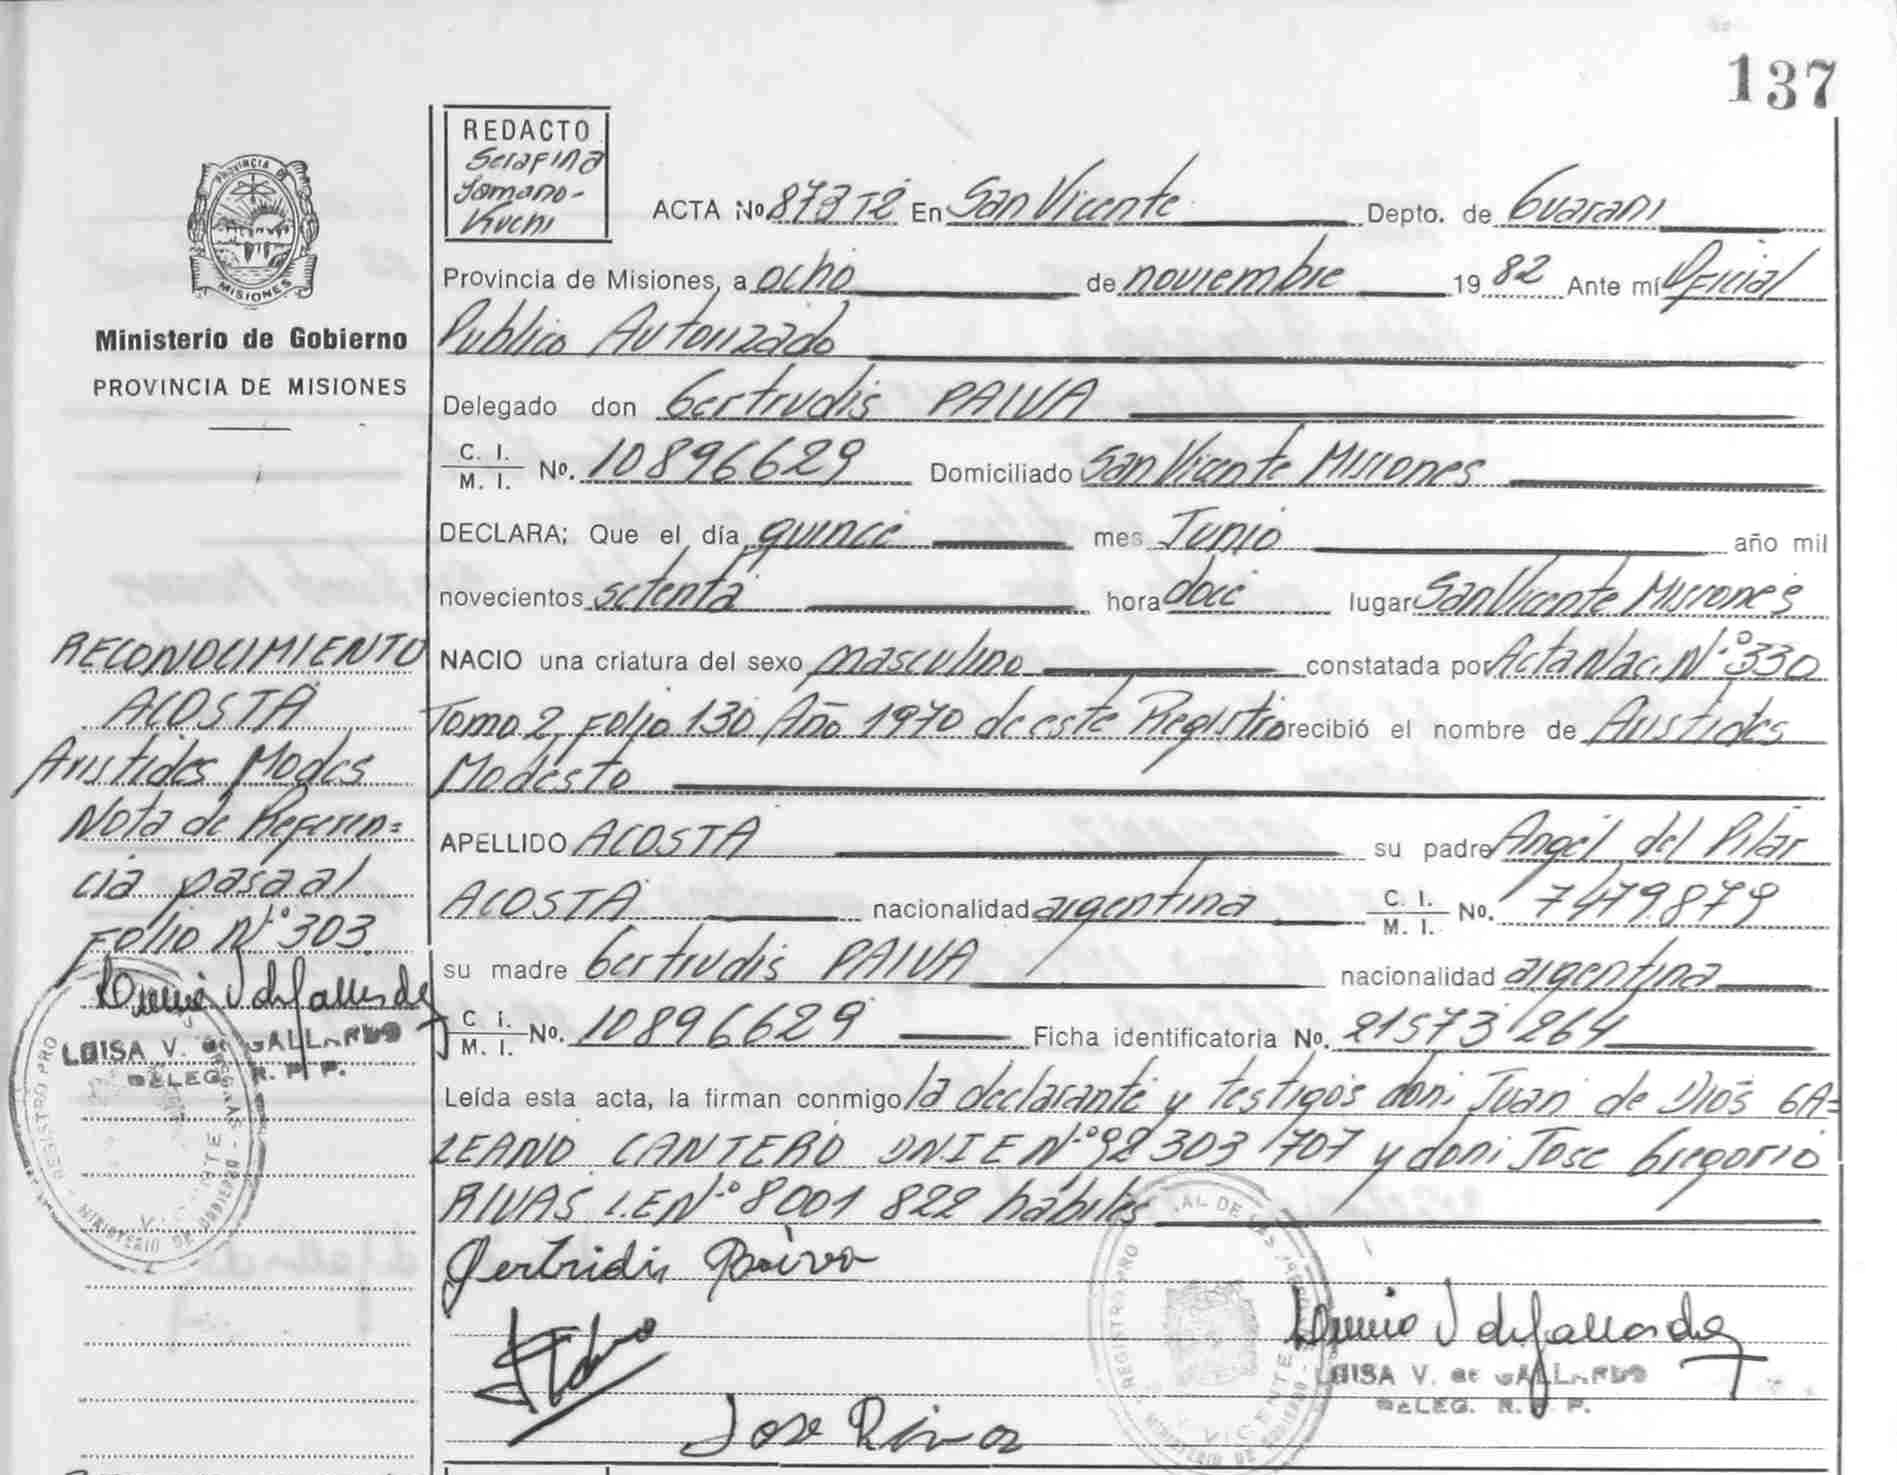 137
PROVINCIA DE
MISIONES
Ministerio de Gobierno
PROVINCIA DE MISIONES
REDACTO
Serafina
Kuchi
ACTA Nº 873 T2 En San Vicente Depto. de Guarani
Provincia de Misiones, a ocho de noviembre 1982 Ante mí Oficial
Publico Autorizado
Delegado don Gertrudis PAIVA
C. I.
M. I. Nº. 10896629 Domiciliado San Vicente Misiones
DECLARA; Que el día quince mes Junio año mil
novecientos setenta hora doce lugar San Vicente Misiones
NACIO una criatura del sexo masculino constatada por Acta Nac. N.º 330
Tomo 2 Folio 130 Año 1970 de este Registro recibió el nombre de Aristides
Modesto
APELLIDO ACOSTA su padre Angel del Pilar
ACOSTA nacionalidad argentina C. I. M. I. Nº. 7479.879
su madre Gertrudis PAIVA nacionalidad argentina
C. I. M. I. Nº. 10896629 Ficha identificatoria Nº. 21573264
Leída esta acta, la firman conmigo la declarante y testigos don: Juan de Dios GA=
LEANO CANTERO DNIE N.º 92303707 y don: Jose Gregorio
RIVAS L.E N.º 8001822 hábiles
Gertridis Paiva
Jose Rivas
LUISA V. DE GALLARDO
DELEG. R. P. P.
RECONOCIMIENTO
ACOSTA
Aristides Modes
Nota de Referen=
cia pasa al
Folio N.º 303
LUISA V. DE GALLARDO
DELEG. R. P. P.